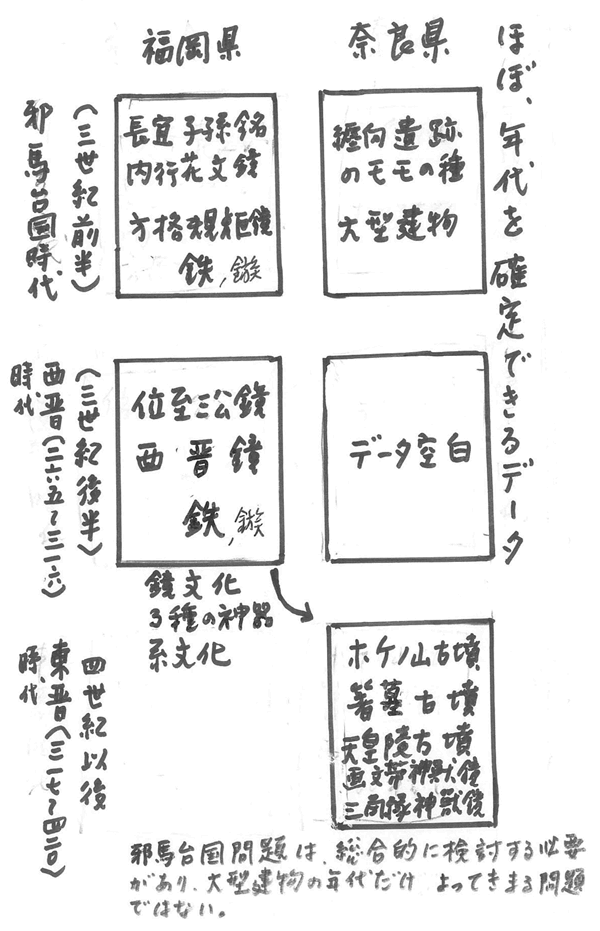 ほぼ、年代を確定できるデータ
奈良県
福岡県
邪馬台国時代
(三世紀前半)
長宜子孫銘
内行花文鏡
方格規矩鏡
鉄,鏃
纒向遺跡
のモモの種
大型建物
(三世紀後半)
西晋(二六五〜三一六)
時代
位至三公鏡
西晋鏡
鉄,鏃
データ空白
鏡文化
3種の神器
系文化
四世紀以後
東晋(三一七〜四二〇)
時代
ホケノ山古墳
箸墓古墳
天皇陵古墳
画文帯神獣鏡
三角縁神獣鏡
邪馬台国問題は、総合的に検討する必要
があり、大型建物の年代だけ よってきまる問題
ではない。